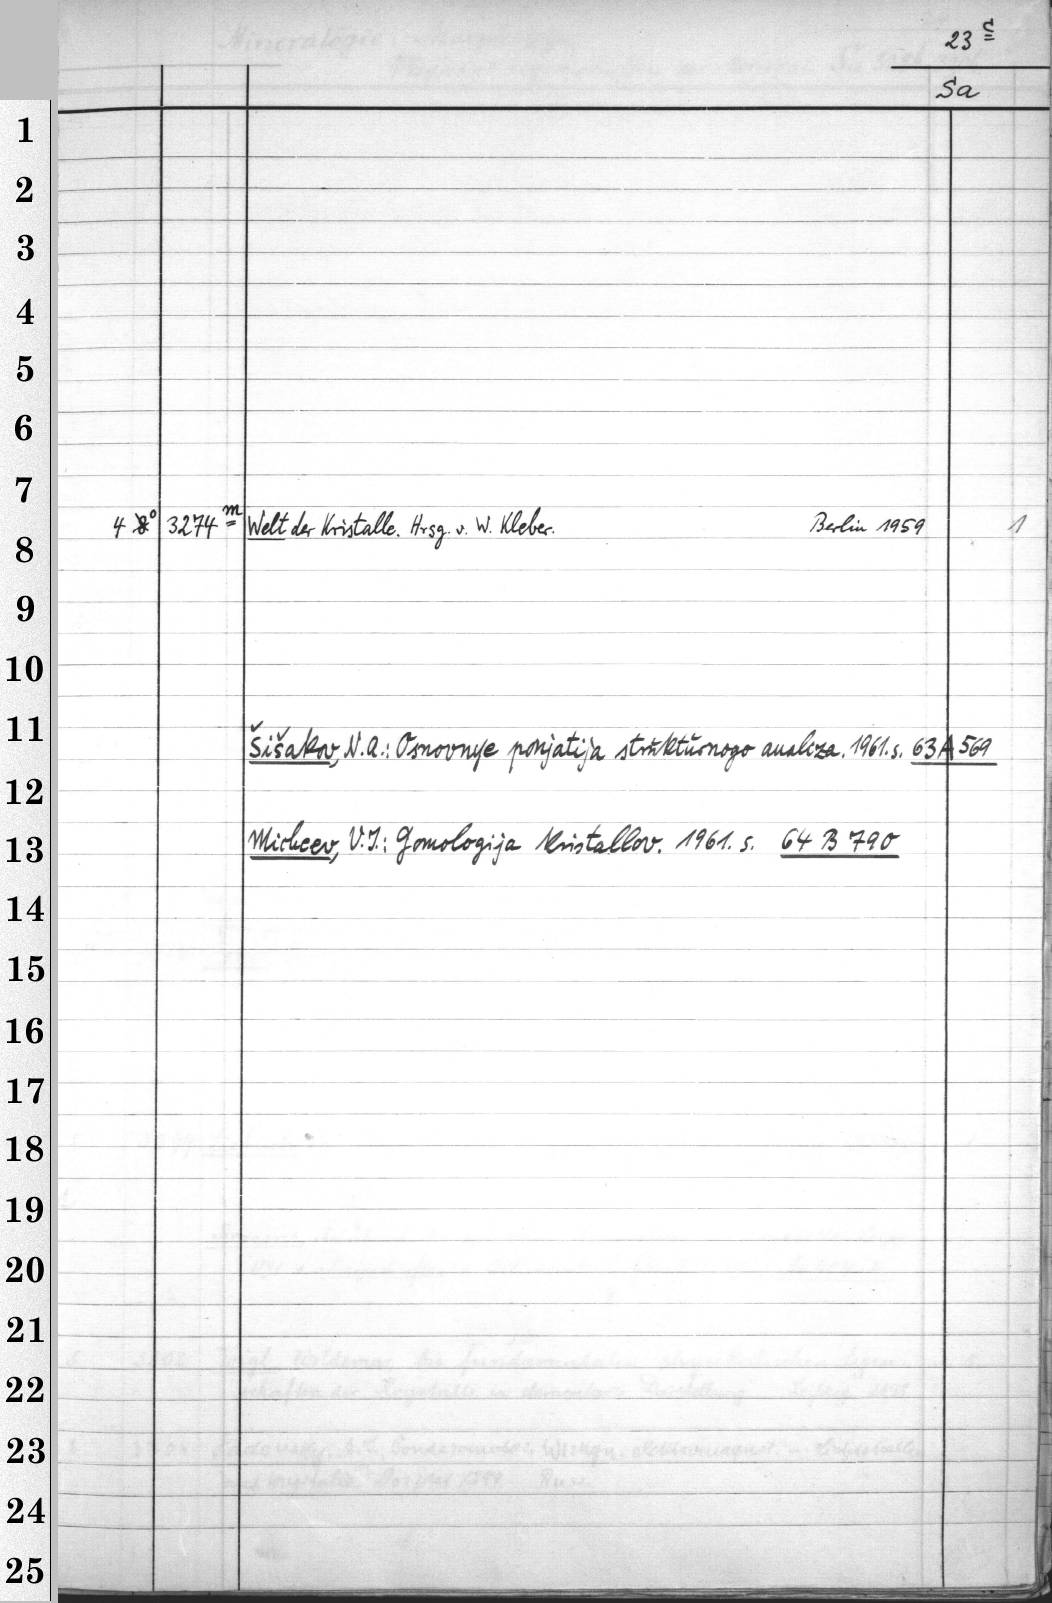 23 c
Sa
1
2
3
4
5
6
7
4 8° 3274 m Welt der Kristalle. Hrsg. v. W. Kleber. Berlin 1959 1
8
9
10
11
Šišakov, N.A.: Osnovnye ponjatija strŭktŭrnogo analiza. 1961. s. 63 A 569
12
Micheev, V.I.: Gomologija Kristallov. 1961. s. 64 B 790
13
14
15
16
17
18
19
20
21
22
23
24
25